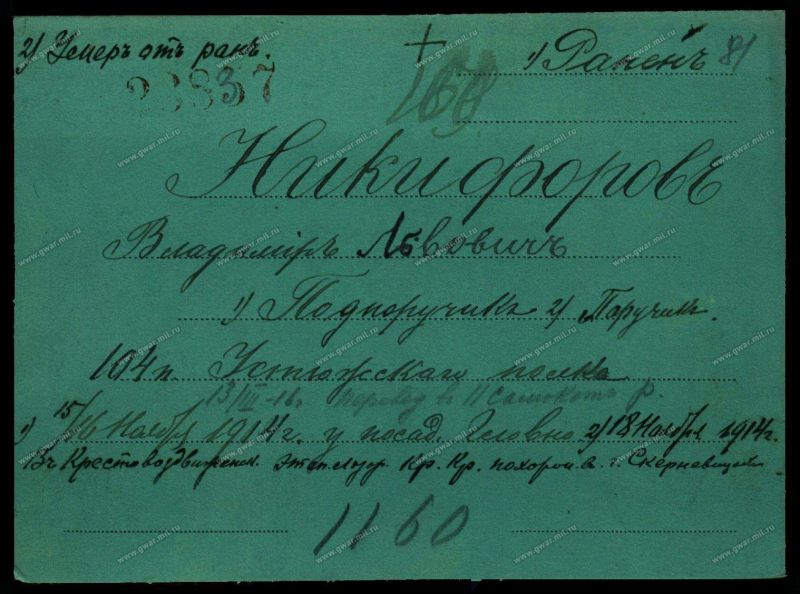 2) Умеръ отъ ранъ. 1) Раненъ 81
23837
Никифоровъ
Владиміръ Львовичъ
1) Подпоручикъ 2) Поручикъ.
104 п. Устюжскаго полка
13/III-16г. перевод в 11 самокатн. р.
1) 15/16 Ноября 1914г. у посад. Гловно 2) 18 Ноября 1914г.
Въ Крестовоздвиженск. этап. лазар. Кр. Кр. похорон. в г. Скерневицы
1160
www.gwar.mil.ru